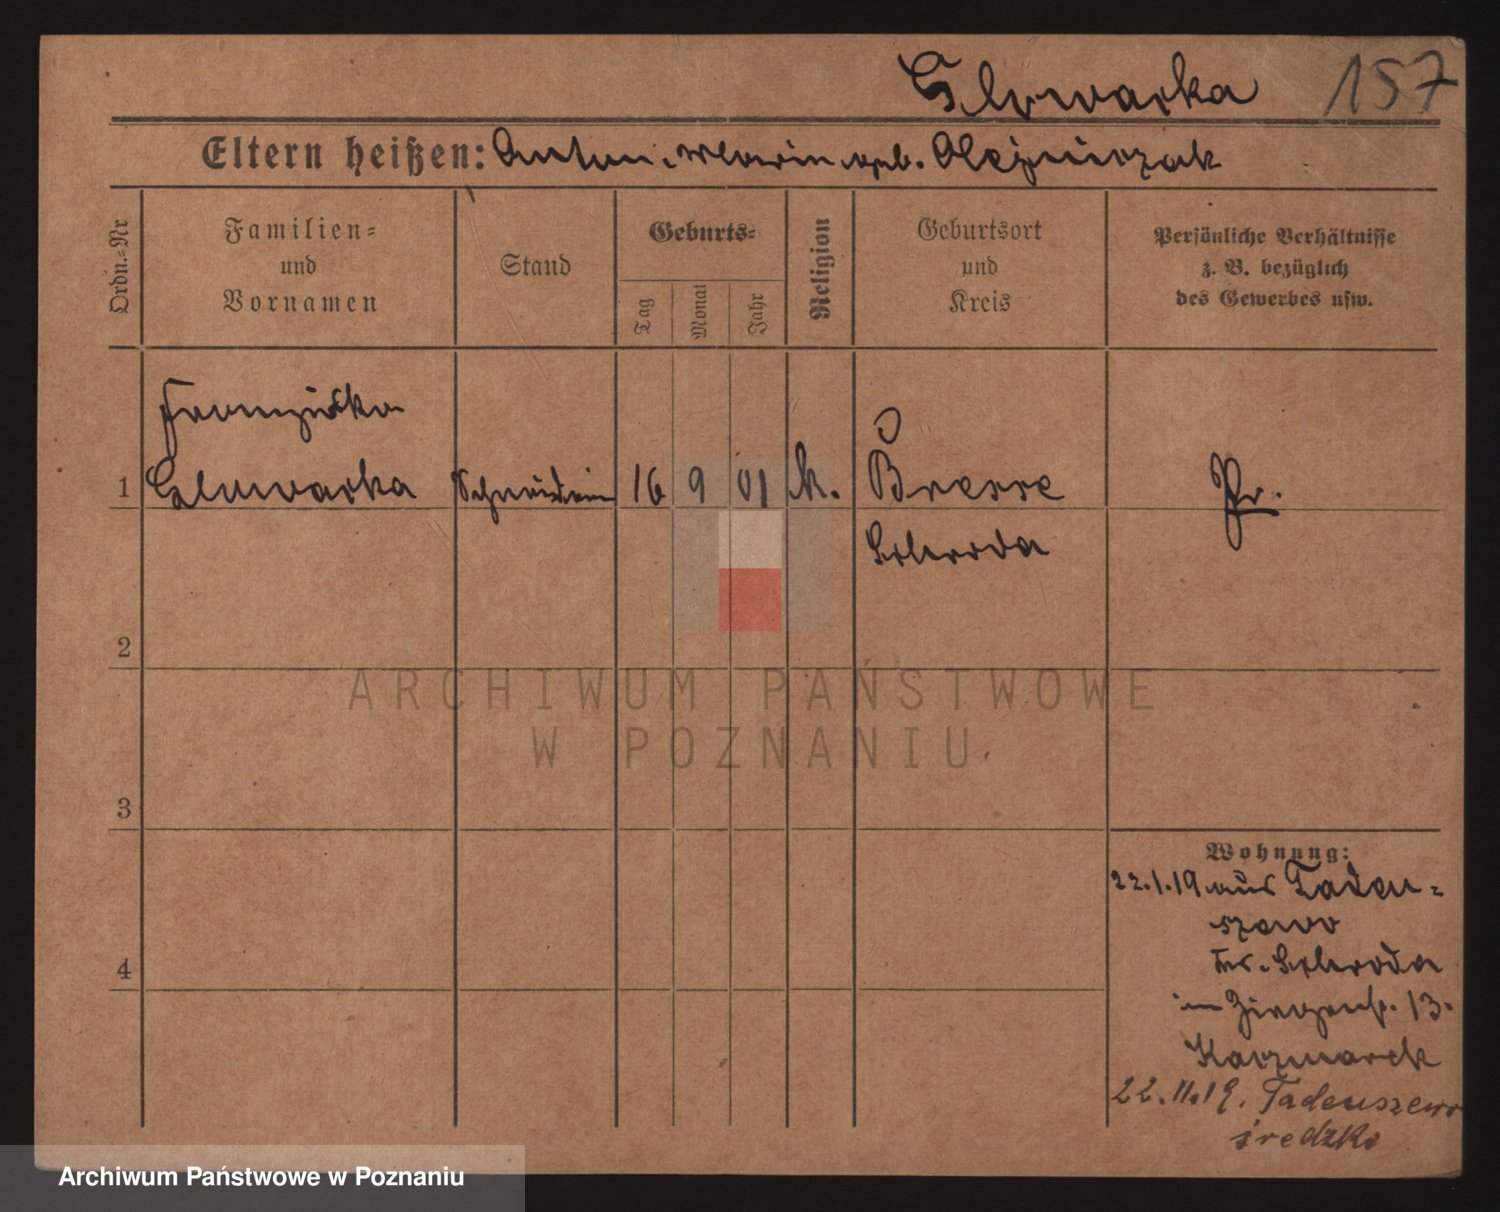 157
Eltern heißen: Anton u. Maria geb. Olejniczak
Ordn.-Nr
Familien-
und
Vornamen
Stand
Geburts-
Tag
Monat
Jahr
Religion
Geburtsort
und
Kreis
Persönliche Verhältnisse
z. B. bezüglich
des Gewerbes usw.
Franziska
1 Schneiderin 16 9 01 k. Pr.
Schroda
2
3
4
Wohnung:
22.1.19 aus Tadeu-
szewo
Kr. Schroda
in Ziegenstr. 13.
Kaczmarek
22.11.19. Tadeuszewo
średzki
ARCHIWUM PAŃSTWOWE
W POZNANIU
Archiwum Państwowe w Poznaniu